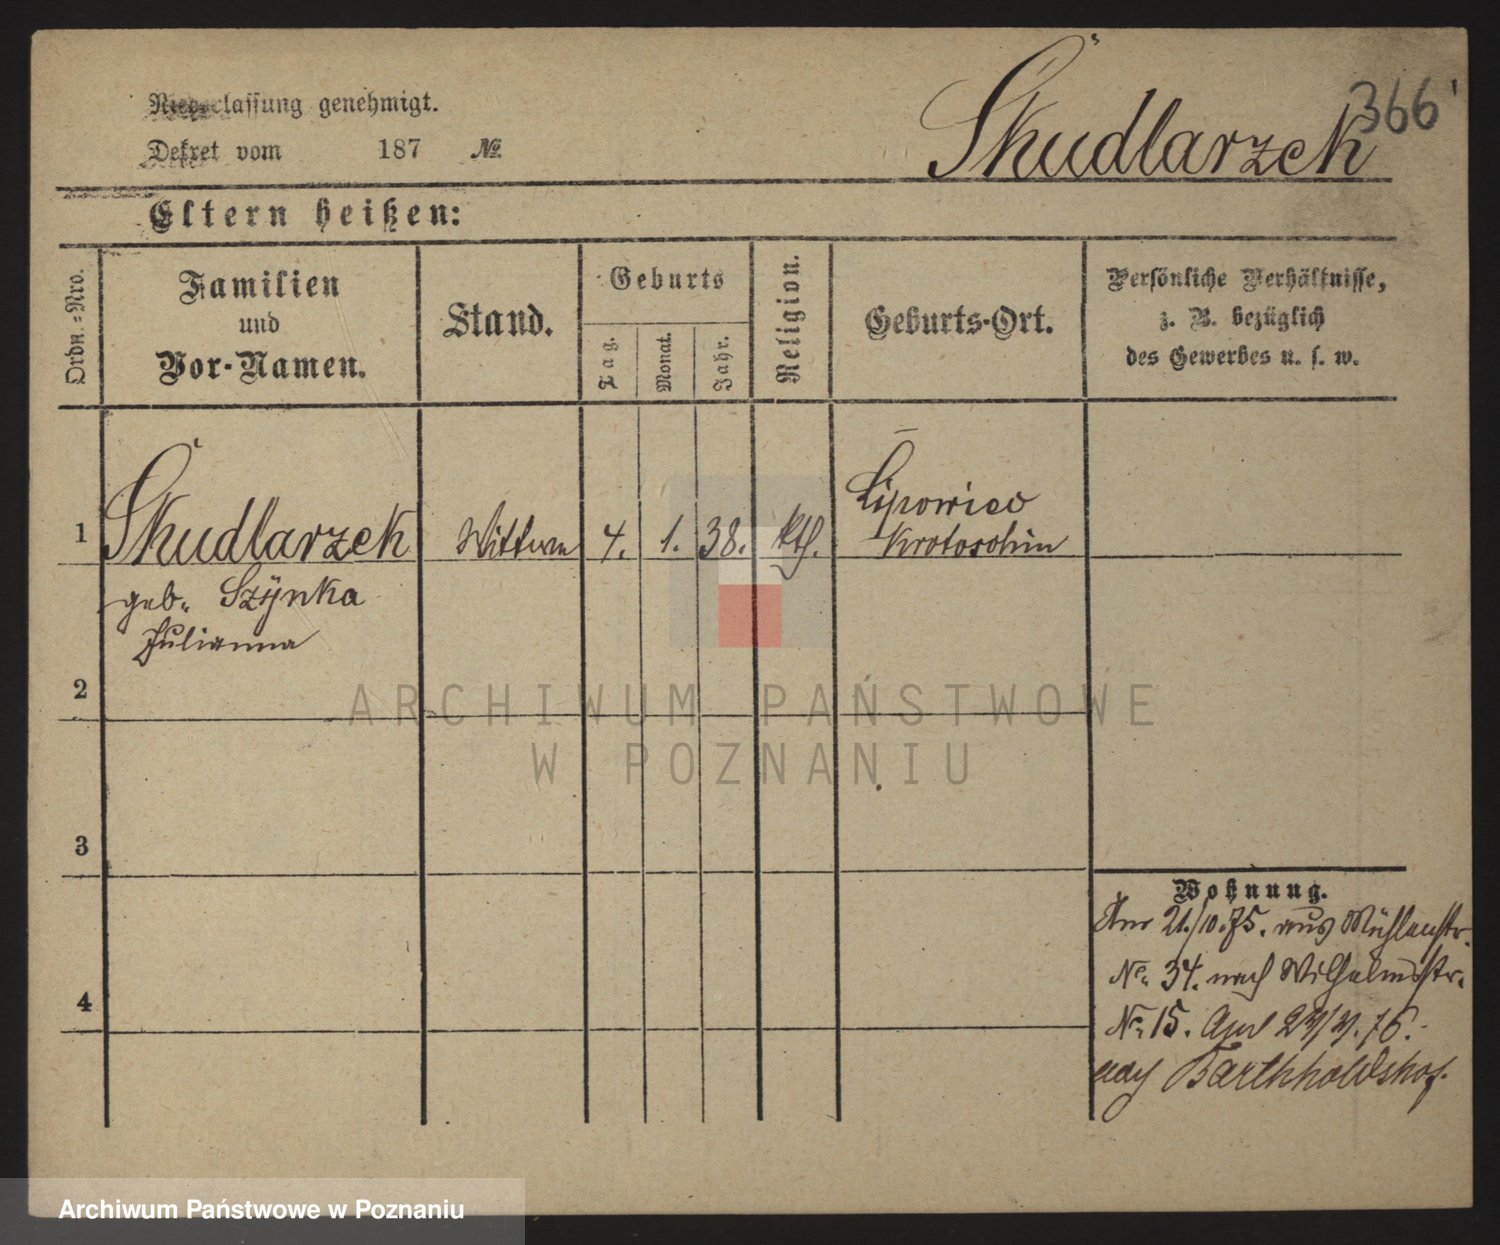 Niederlassung genehmigt.
Skudlarzek
366
Dekret vom 187 №
Eltern heißen:
Ordn.-Nro.
Familien
und
Vor-Namen.
Stand.
Geburts
Tag.
Monat.
Jahr.
Religion.
Geburts-Ort.
Persönliche Verhältnisse,
z. B. bezüglich
des Gewerbes u. s. w.
1 Skudlarzek Wittwe 4. 1. 38. kth. Lipowiec
Krotoschin
geb. Szÿnka
Julianna
2
3
4
Wohnung.
Am 21./10.75. aus Mühlenstr.
No. 34. nach Wilhelmsstr.
No. 15. 76.
nach Bartholdshof.
ARCHIWUM PAŃSTWOWE
W POZNANIU
Archiwum Państwowe w Poznaniu